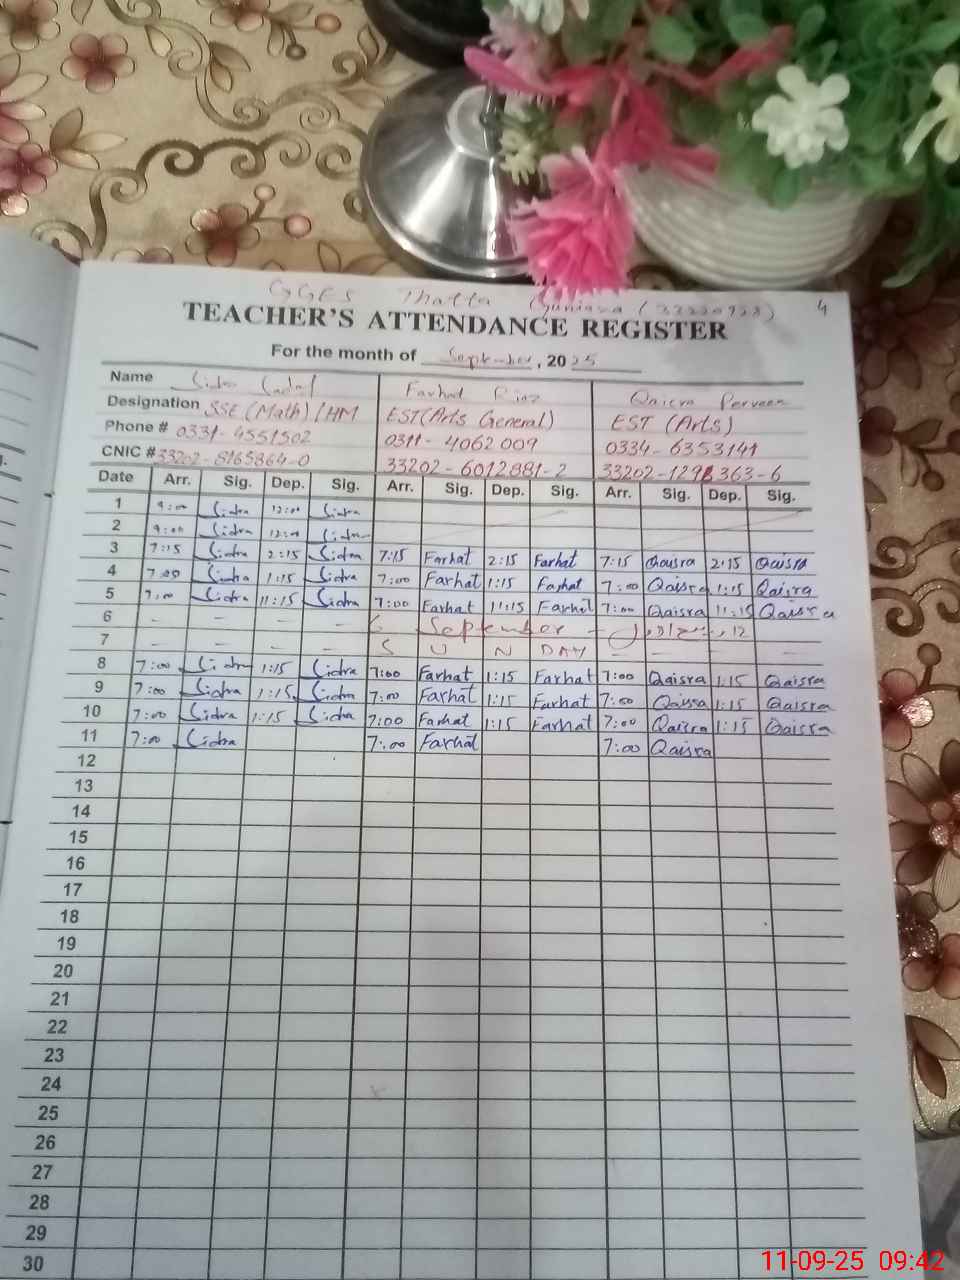 GGES Thatta (33220928) 4
TEACHER'S ATTENDANCE REGISTER
For the month of September, 2025
Name Sidra Farhat Riaz Qaisra Perveen
Designation SSE (Math) / HM EST (Arts General) EST (Arts)
Phone # 0331-4551502 0311-4062009 0334-6353141
CNIC # 33202-8165864-0 33202-6012881-2 33202-129 363-6
Date Arr. Sig. Dep. Sig. Arr. Sig. Dep. Sig. Arr. Sig. Dep. Sig.
1 9:00 Sidra 12:00 Sidra
2 9:00 Sidra 12:00 Sidra
3 7:15 Sidra 2:15 Sidra 7:15 Farhat 2:15 Farhat 7:15 Qaisra 2:15 Qaisra
4 7:00 Sidra 1:15 Sidra 7:00 Farhat 1:15 Farhat 7:00 Qaisra 1:15 Qaisra
5 7:00 Sidra 11:15 Sidra 7:00 Farhat 11:15 Farhat 7:00 Qaisra 11:15 Qaisra
6 - - - - 6 September - 12
7 - - - - S U N DAY - - - -
8 7:00 Sidra 1:15 Sidra 7:00 Farhat 1:15 Farhat 7:00 Qaisra 1:15 Qaisra
9 7:00 Sidra 1:15 Sidra 7:00 Farhat 1:15 Farhat 7:00 Qaisra 1:15 Qaisra
10 7:00 Sidra 1:15 Sidra 7:00 Farhat 1:15 Farhat 7:00 Qaisra 1:15 Qaisra
11 7:00 Sidra 7:00 Farhat 7:00 Qaisra
12
13
14
15
16
17
18
19
20
21
22
23
24
25
26
27
28
29
30
11-09-25 09:42